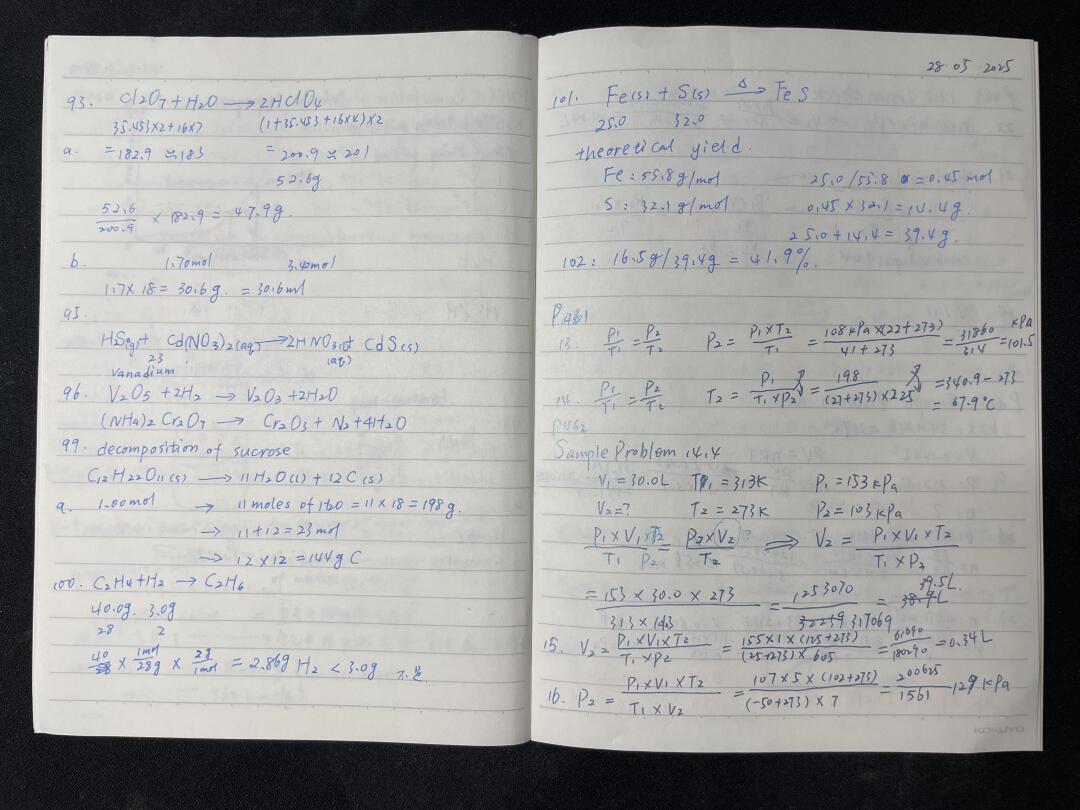 93. Cl2O7 + H2O ⟶ 2HClO4
35.453×2+16×7 (1+35.453+16×4)×2
a. = 182.9 ≈ 183 = 200.9 ≈ 201
52.6g
52.6/200.9 × 182.9 = 47.9g.
b. 1.70mol 3.40mol
1.7×18 = 30.6g. = 30.6ml
95.
H2S(g) + Cd(NO3)2(aq) ⟶ 2HNO3(aq) + CdS(s)
23
vanadium
96. V2O5 + 2H2 ⟶ V2O3 + 2H2O
(NH4)2Cr2O7 ⟶ Cr2O3 + N2 + 4H2O
99. decomposition of sucrose
C12H22O11(s) ⟶ 11H2O(l) + 12C(s)
a. 1.00mol → 11 moles of H2O = 11×18 = 198g.
→ 11+12 = 23mol
→ 12×12 = 144g C
100. C2H4 + H2 → C2H6
40.0g. 3.0g
28 2
40 × 1mol/28g × 2g/1mol = 2.86g H2 < 3.0g
28.05.2025
101. Fe(s) + S(s) —Δ→ FeS
25.0 32.0
theoretical yield.
Fe: 55.8g/mol 25.0/55.8 = 0.45mol
S: 32.1g/mol 0.45×32.1 = 14.4g.
25.0+14.4 = 39.4g.
102: 16.5g/39.4g = 41.9%.
13. P1/T1 = P2/T2 P2 = P1×T2/T1 = 108kPa×(22+273)/41+273 = 31860/314 = 101.5 kPa
14. P1/T1 = P2/T2 T2 = P1/T1×P2 = 198/(27+273)×225 = 340.9-273
= 67.9°C
P462
Sample Problem 14.4
V1 = 30.0L T1 = 313K P1 = 153kPa
V2 = ? T2 = 273K P2 = 103kPa
P1×V1×T2/T1 P2 = P2×V2/T2 ? ⟹ V2 = P1×V1×T2/T1×P2
= 153×30.0×273/313×103 = 1253070/32239 317069 = 38.9L 39.5L.
15. V2 = P1×V1×T2/T1×P2 = 155×1×(125+273)/(25+273)×605 = 61690/180290 = 0.34L
16. P2 = P1×V1×T2/T1×V2 = 107×5×(102+273)/(-50+273)×7 = 200625/1561 129kPa